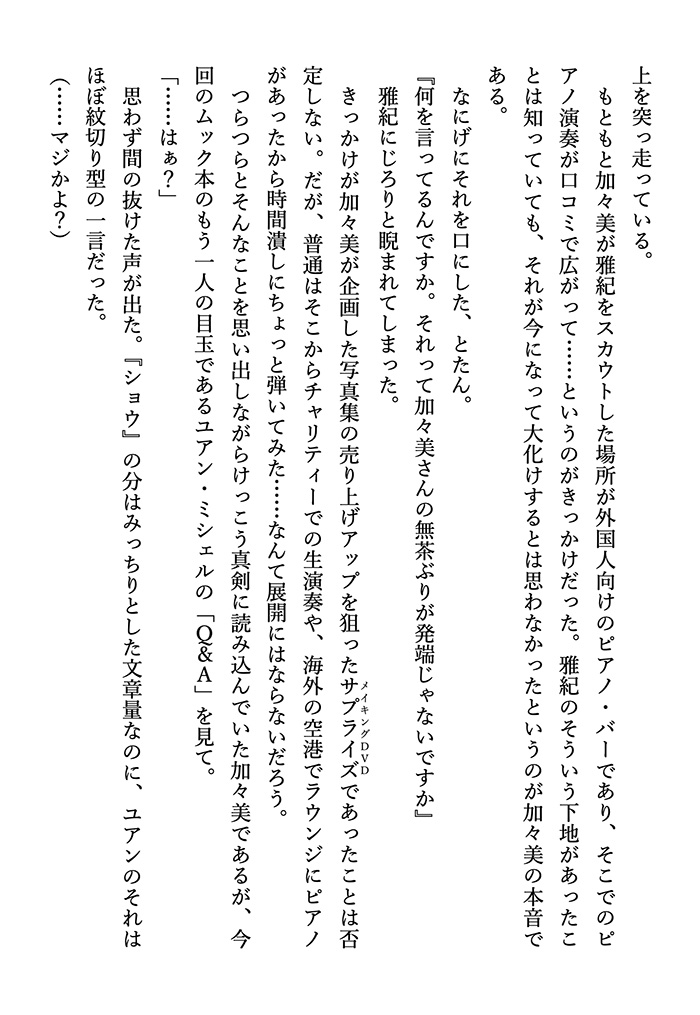 上を突っ走っている。
　もともと加々美が雅紀をスカウトした場所が外国人向けのピアノ・バーであり、そこでのピ
アノ演奏が口コミで広がって……というのがきっかけだった。雅紀のそういう下地があったこ
とは知っていても、それが今になって大化けするとは思わなかったというのが加々美の本音で
ある。
　なにげにそれを口にした、とたん。
『何を言ってるんですか。それって加々美さんの無茶ぶりが発端じゃないですか』
　雅紀にじろりと睨まれてしまった。
　きっかけが加々美が企画した写真集の売り上げアップを狙ったサプライズであったことは否
メイキングDVD
定しない。だが、普通はそこからチャリティーでの生演奏や、海外の空港でラウンジにピアノ
があったから時間潰しにちょっと弾いてみた……なんて展開にはならないだろう。
　つらつらとそんなことを思い出しながらけっこう真剣に読み込んでいた加々美であるが、今
回のムック本のもう一人の目玉であるユアン・ミシェルの「Q&A」を見て。
「……はぁ？」
　思わず間の抜けた声が出た。『ショウ』の分はみっちりとした文章量なのに、ユアンのそれは
ほぼ紋切り型の一言だった。
（……マジかよ？）